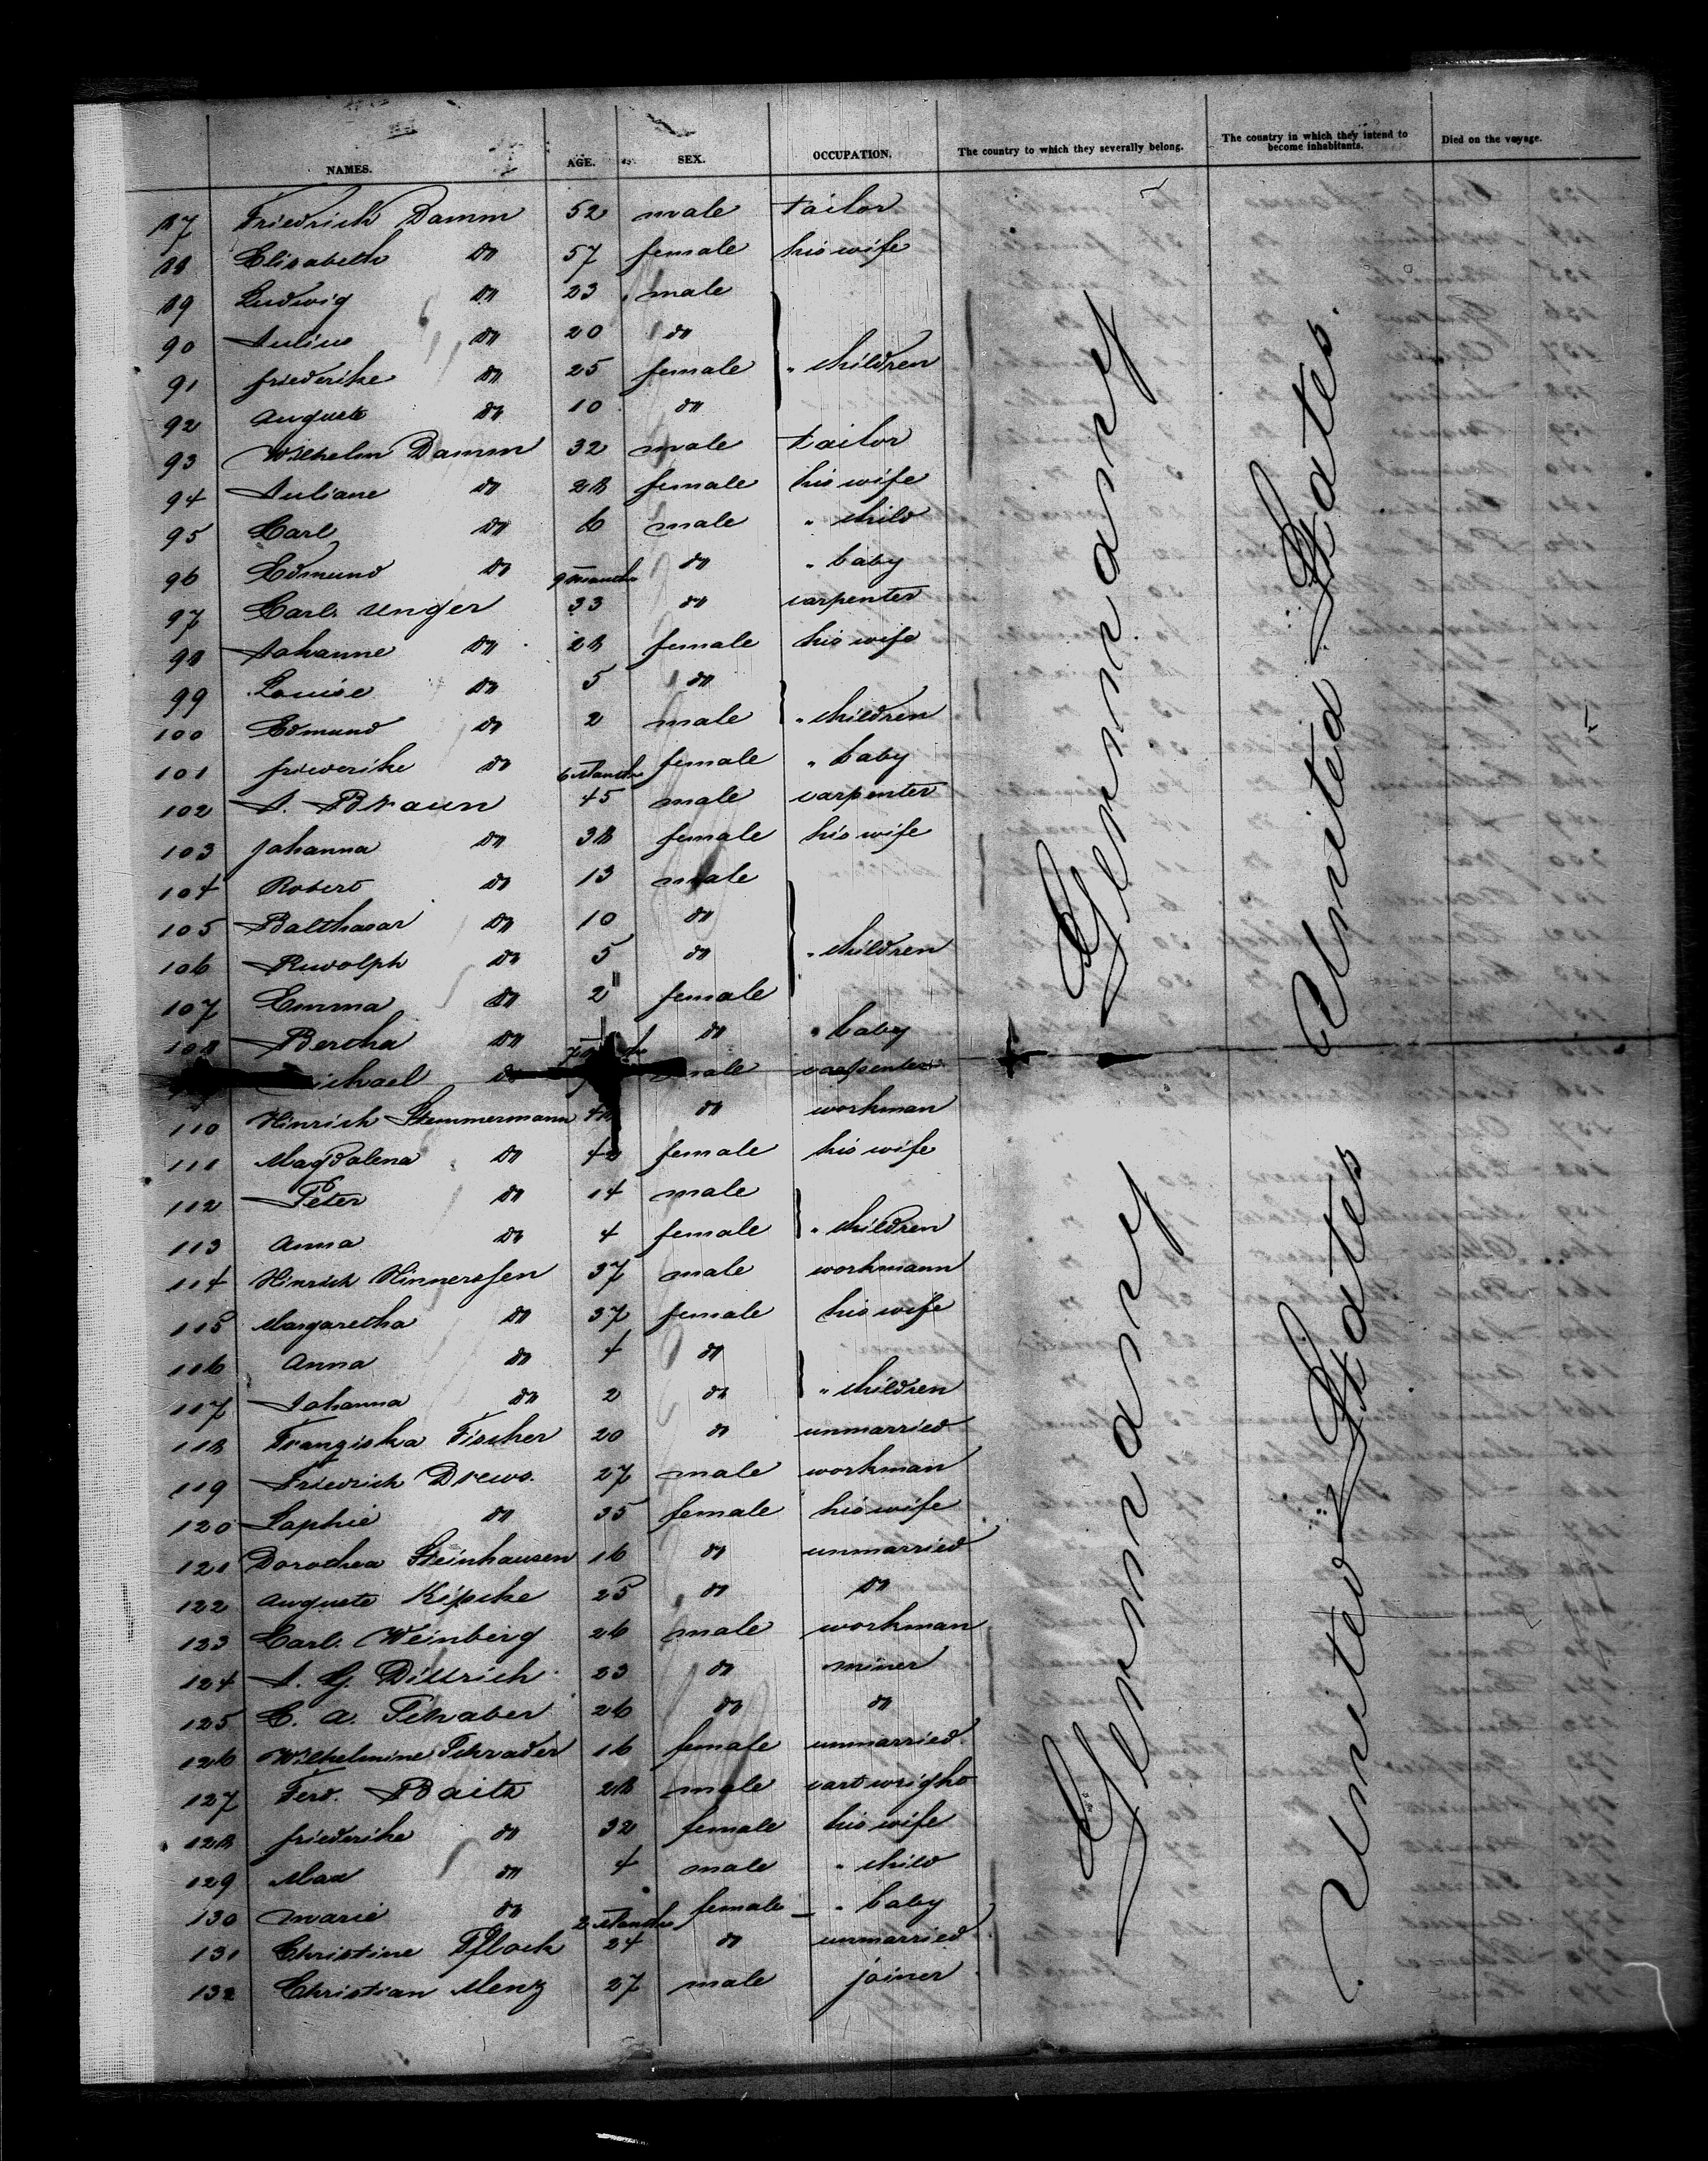 NAMES. AGE. SEX. OCCUPATION. The country to which they severally belong. The country in which they intend to become inhabitants. Died on the voyage.
87 Friedrich Damm 52 male tailor
88 Elisabeth do 57 female his wife
89 Ludwig do 23 male
90 Julius do 20 do
91 friederike do 25 female " children
92 auguste do 10 do
93 Wilhelm Damm 32 male tailor
94 Juliane do 28 female his wife
95 Carl do 6 male " child
96 Edmund do 9 Month do " baby
97 Carl. Unger 33 do carpenter
98 Johanne do 28 female his wife
99 Louise do 5 do
100 Edmund do 2 male " children
101 friederike do 6 Month female " baby
102 J. Braun 45 male carpenter
103 Johanna do 38 female his wife
104 Robert do 13 male
105 Balthasar do 10 do
106 Rudolph do 5 do " children
107 Emma do 2 female
108 Bertha do do " baby
do male carpenter
110 Hinrich Stemmermann do workman
111 Magdalena do 42 female his wife
112 Peter do 14 male
113 Anna do 4 female " children
114 Hinrich Hinnerssen 37 male workmann
115 Margaretha do 37 female his wife
116 Anna do 4 do
117 Johanna do 2 do " children
118 Franziska Fischer 20 do unmarried
119 Friedrich Drews. 27 male workman
120 Sophie do 35 female his wife
121 Dorothea Steinhausen 16 do unmarried
122 auguste Kipcke 25 do do
123 Carl. Weinberg 26 male workman
124 J. G. Dittrich 23 do miner
125 C. A. Schaber 26 do do
126 Wilhelmine Schrader 16 female unmarried
127 Ferd. Baitz 28 male cartwright
128 friederike do 32 female his wife
129 Max do 4 male " child
130 Marie do 2 Month female " baby
131 Christine Pflock 24 do unmarried
132 Christian Menz 27 male joiner
Germany
United States.
Germany
United States